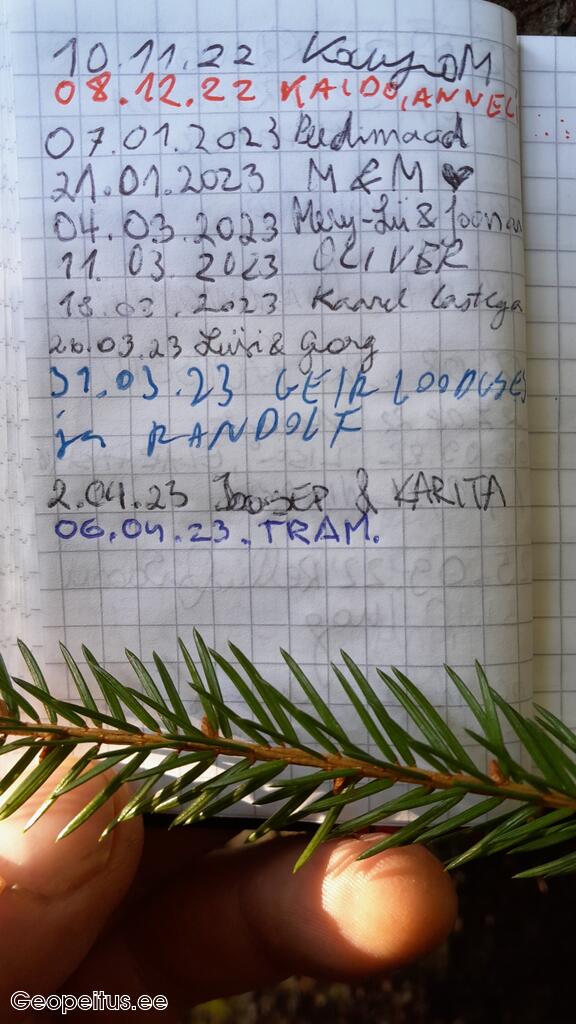 10.11.22
08.12.22 KAIDO, ANNELI
07.01.2023
21.01.2023 M & M ♥
04.03.2023 Mery-Lii & Joonas
11.03.2023 OLIVER
18.03.2023 Kaarel
26.03.23 Liisi & Georg
31.03.23 GEIR LOODUSES
ja RANDOLF
2.04.23 JOOSEP & KARITA
06.04.23. TRAM.
Geopeitus.ee